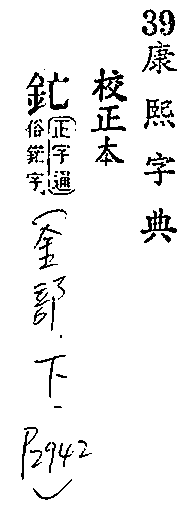 39康熙字典
校正本
釯正字通俗鋩字
(金部.下-
P2942)